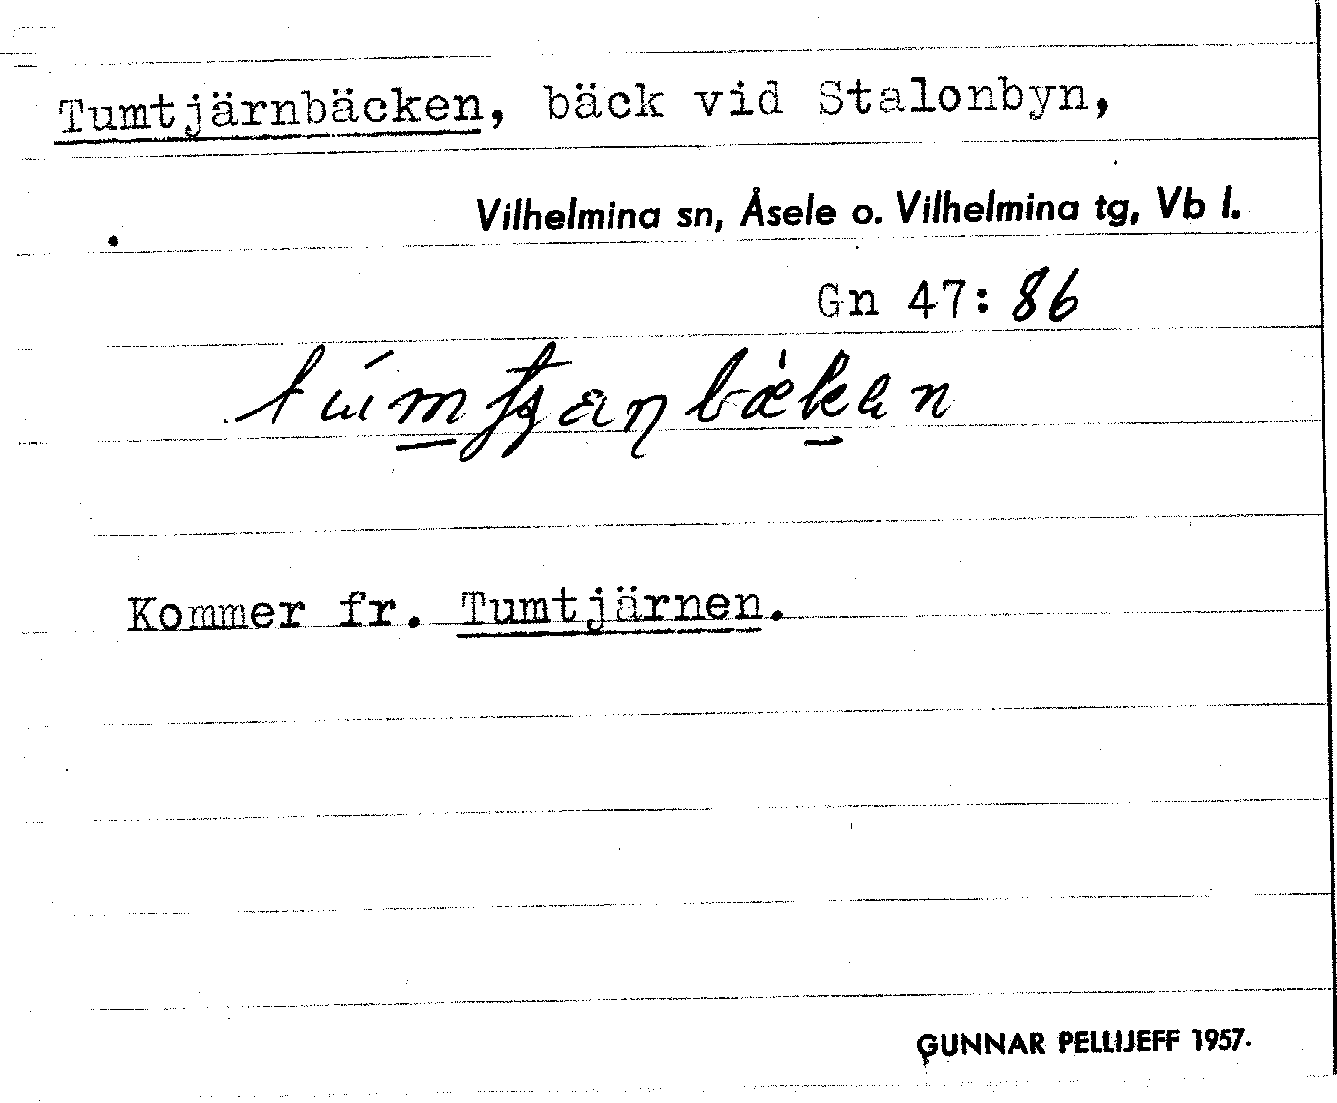 Tumtjärnbäcken, bäck vid Stalonbyn,
Vilhelmina sn, Åsele o. Vilhelmina tg, Vb l.
Gn 47: 86
Kommer fr. Tumtjärnen.
GUNNAR PELLIJEFF 1957.